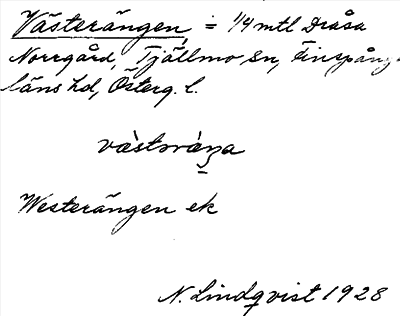 Västerängen, = 1/4 mtl Dråsa
Norrgård, Tjällmo sn, Finspånga
läns hd, Österg. l.
Westerängen ek
N. Lindqvist 1928